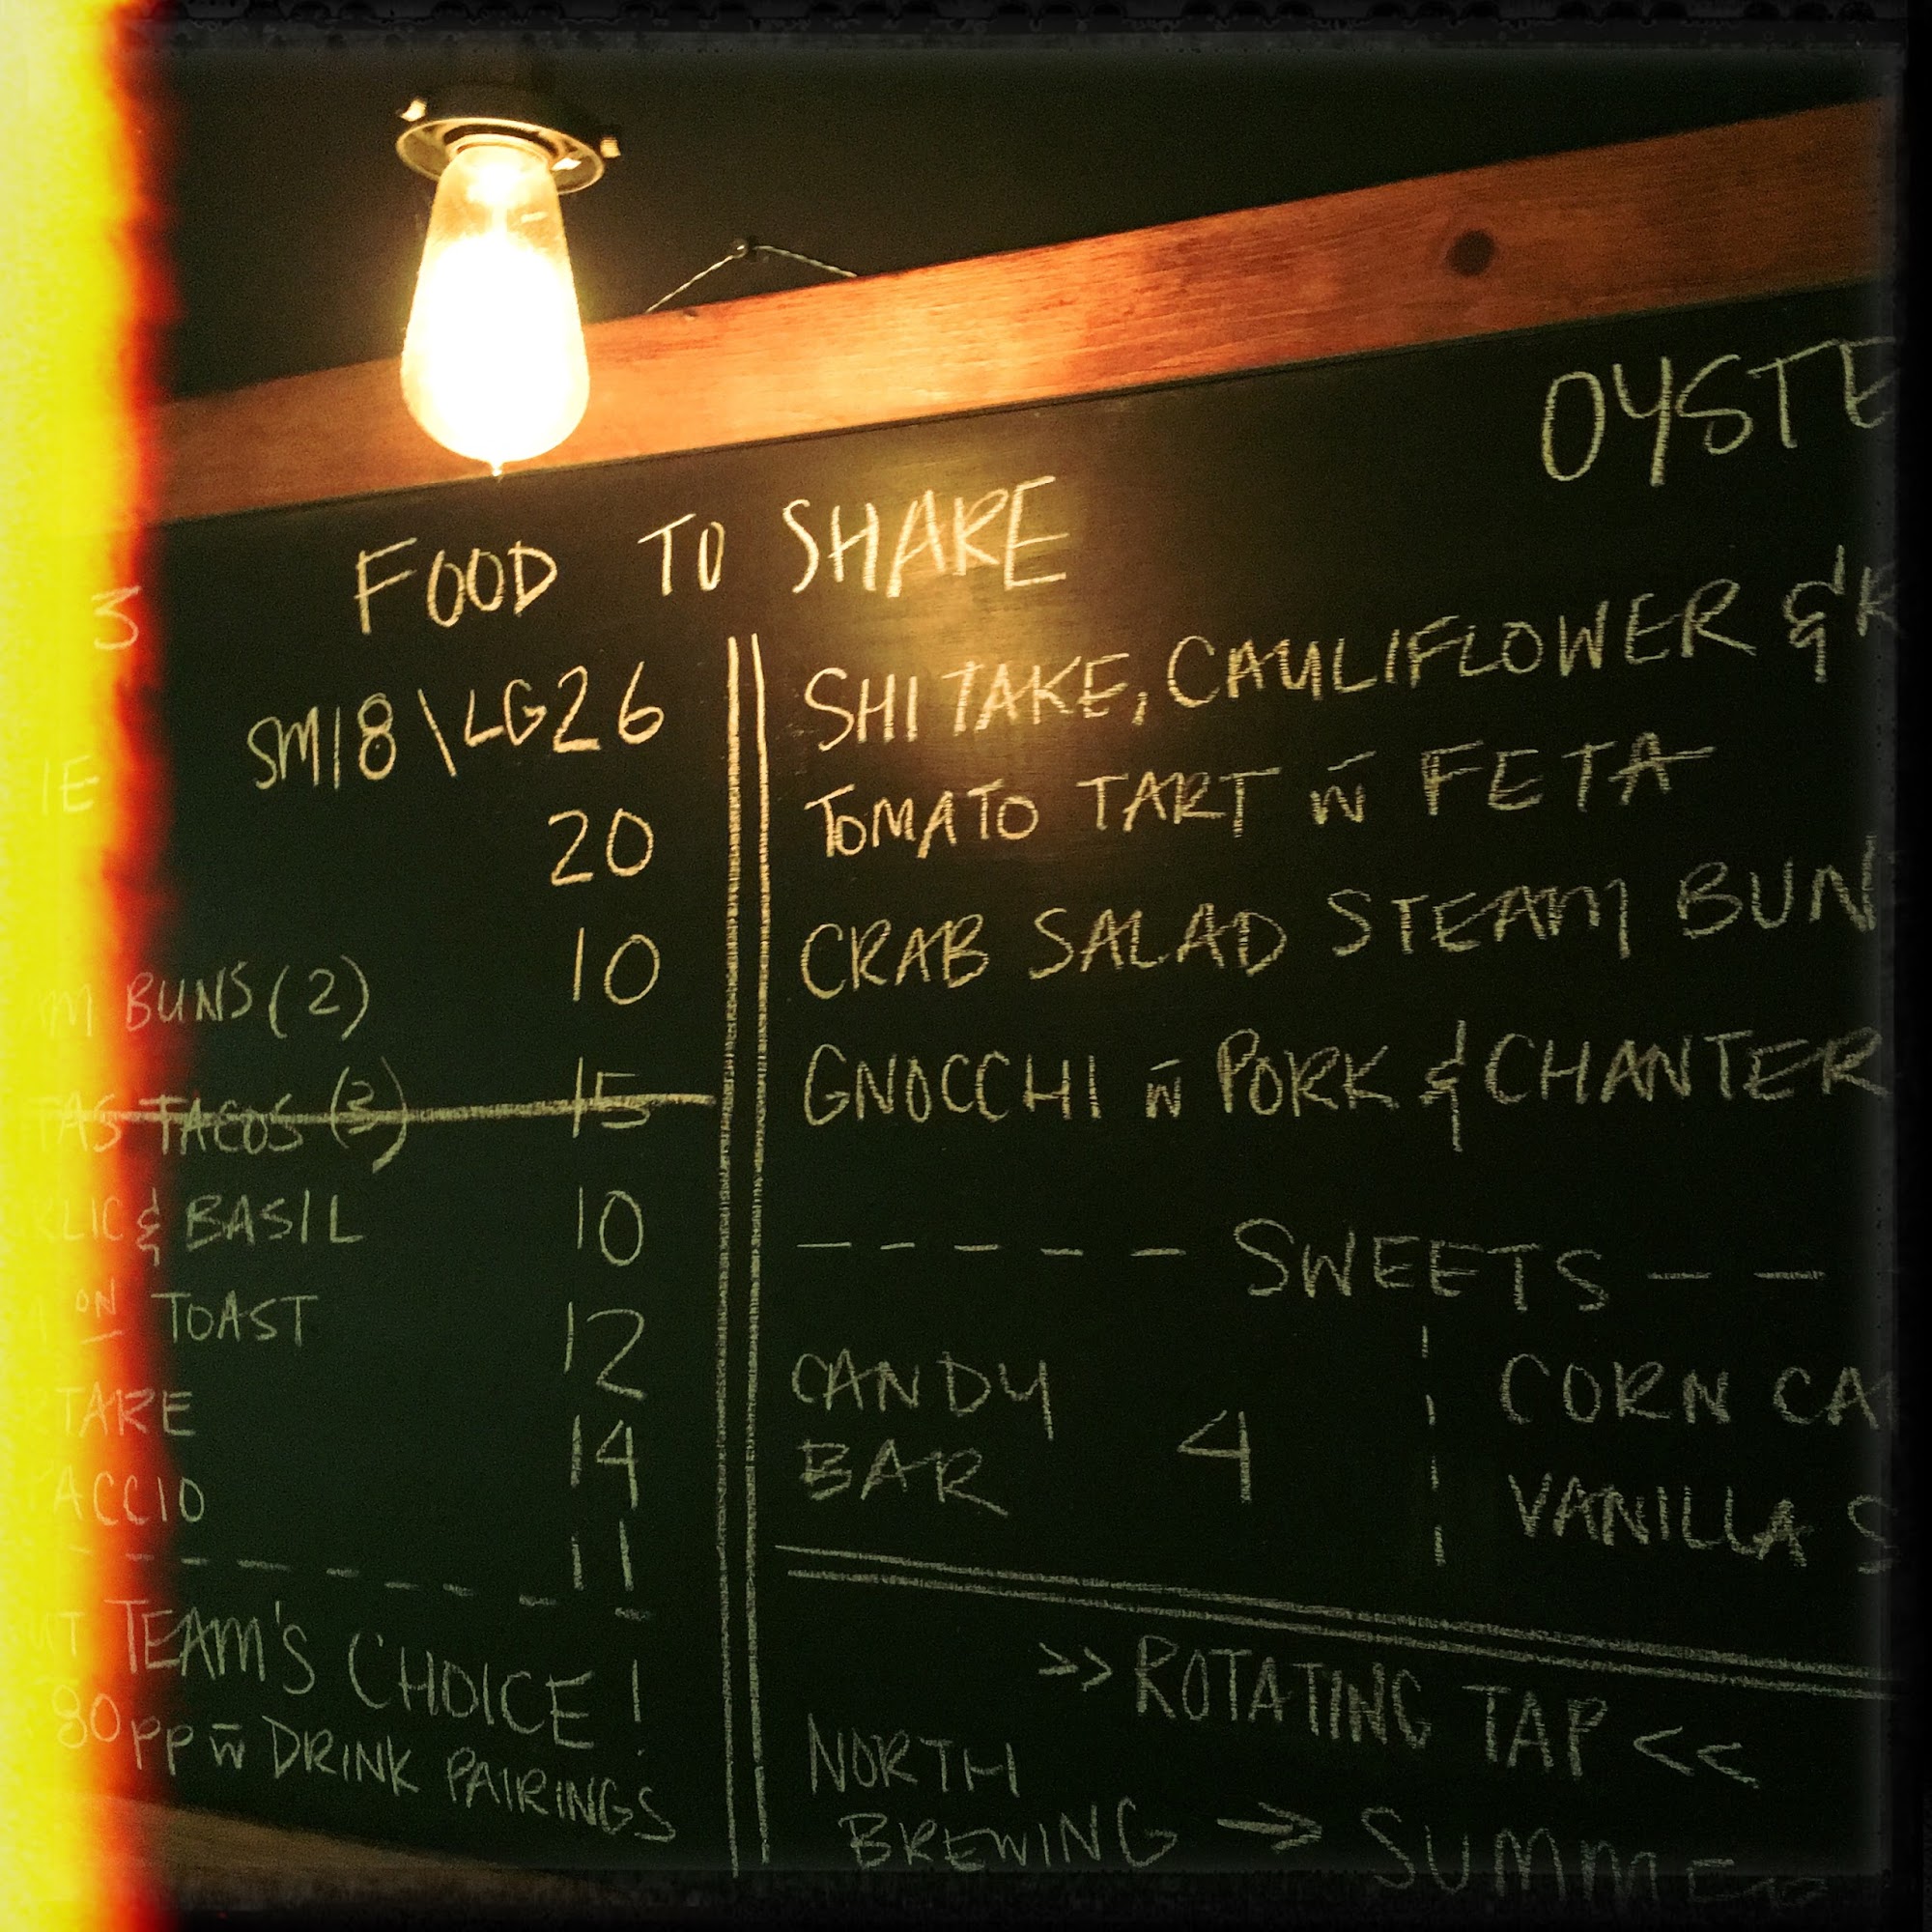 OYSTE
FOOD TO SHARE
3
SM18\LG26
IE
20
10
M BUNS (2)
TAS TACOS (3) 15
LIC & BASIL 10
ON TOAST 12
TARE 14
ACCIO 11
TEAM'S CHOICE!
80pp w̄ DRINK PAIRINGS
SHITAKE, CAULIFLOWER &
TOMATO TART w̄ FETA
CRAB SALAD STEAM BUN
GNOCCHI w̄ PORK & CHANTER
----- SWEETS --
CANDY
BAR 4
CORN CA
VANILLA S
>> ROTATING TAP <<
NORTH
BREWING → SUMME